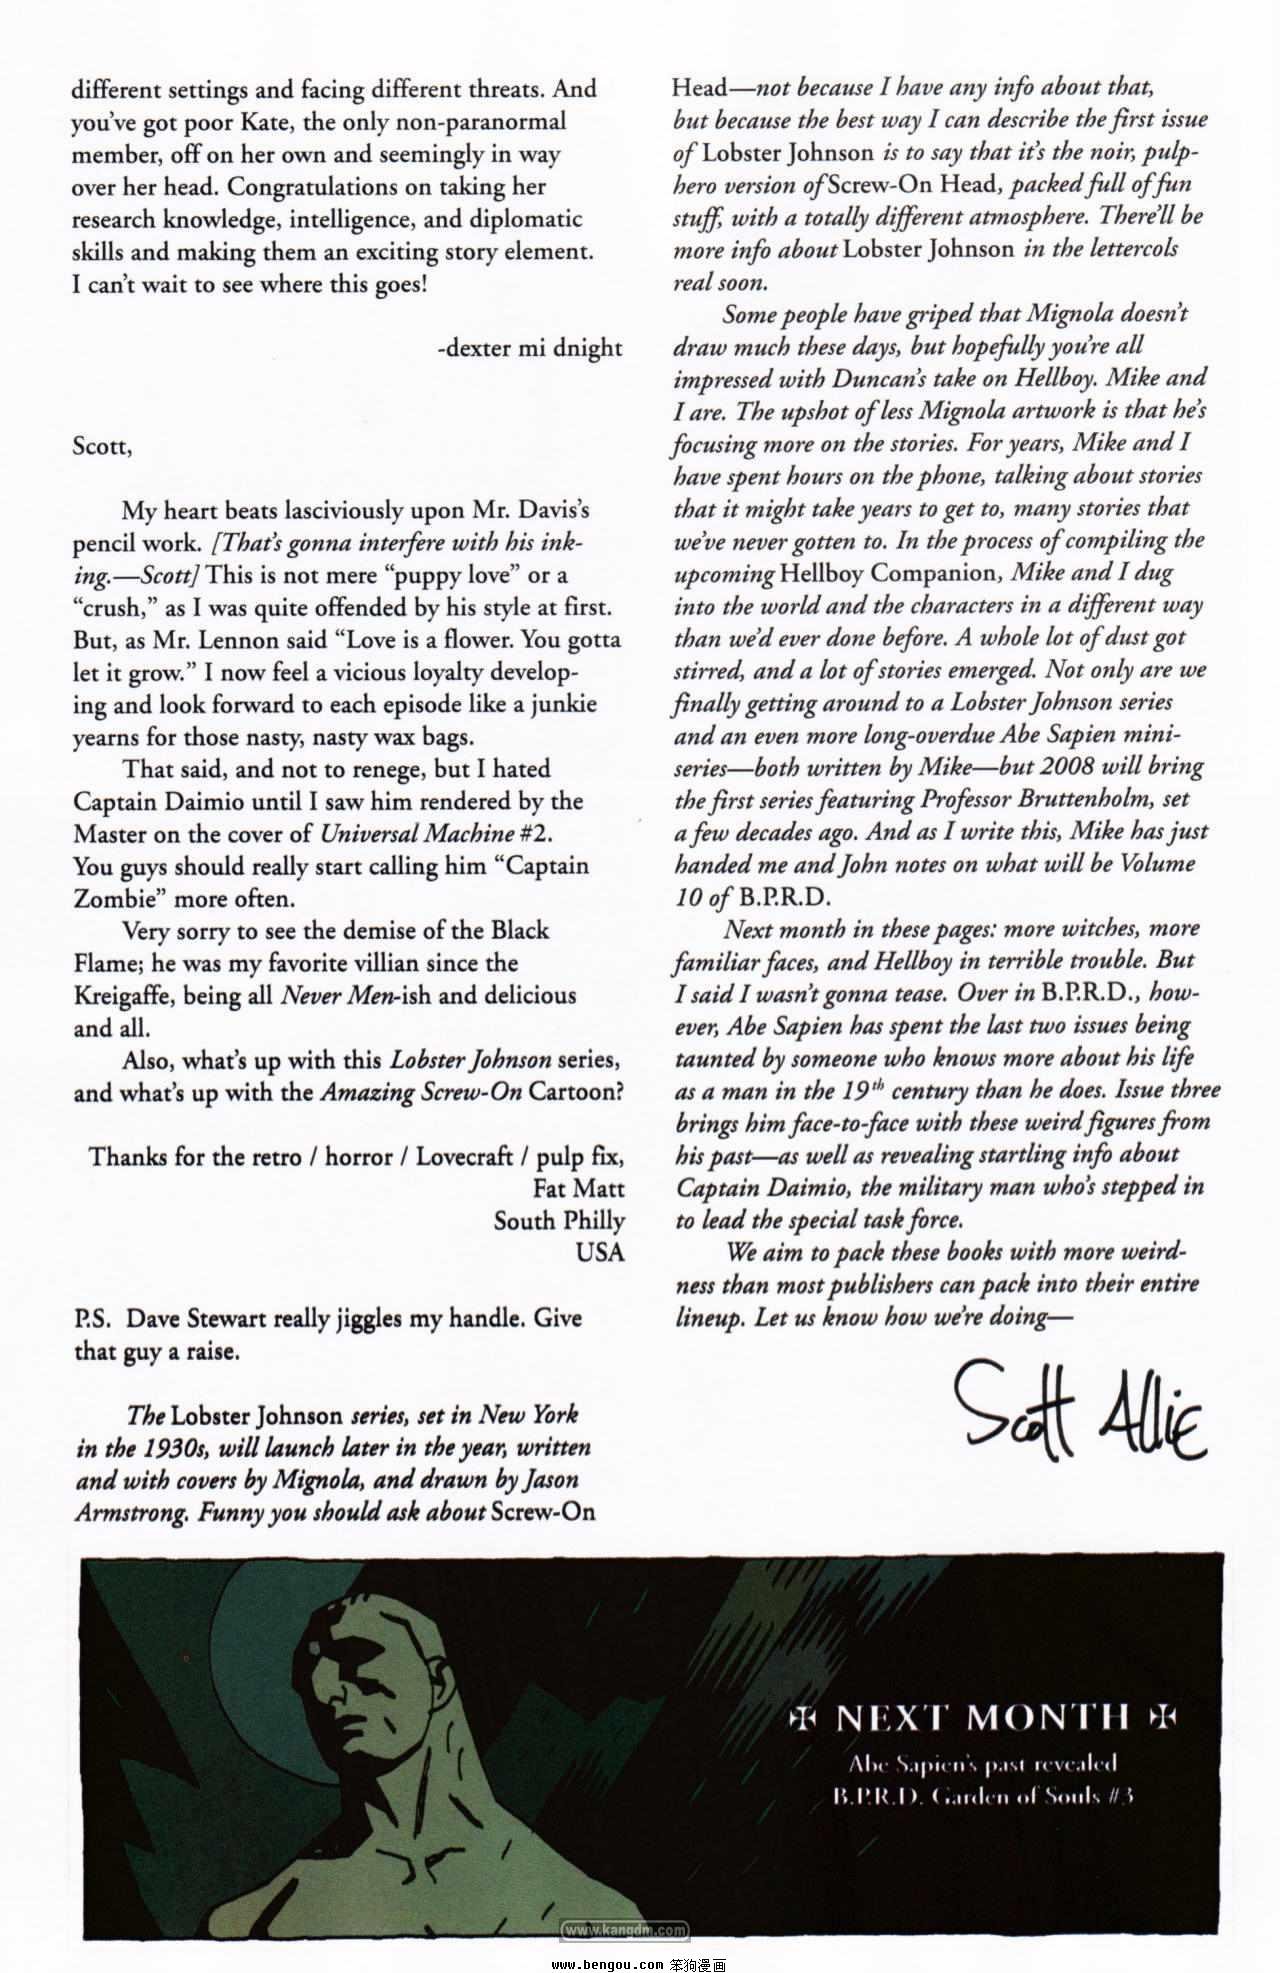 different settings and facing different threats. And
you've got poor Kate, the only non-paranormal
member, off on her own and seemingly in way
over her head. Congratulations on taking her
research knowledge, intelligence, and diplomatic
skills and making them an exciting story element.
I can't wait to see where this goes!
-dexter mi dnight
Scott,
My heart beats lasciviously upon Mr. Davis's
pencil work. [That's gonna interfere with his ink-
ing.—Scott] This is not mere “puppy love” or a
“crush,” as I was quite offended by his style at first.
But, as Mr. Lennon said “Love is a flower. You gotta
let it grow.” I now feel a vicious loyalty develop-
ing and look forward to each episode like a junkie
yearns for those nasty, nasty wax bags.
That said, and not to renege, but I hated
Captain Daimio until I saw him rendered by the
Master on the cover of Universal Machine #2.
You guys should really start calling him “Captain
Zombie” more often.
Very sorry to see the demise of the Black
Flame; he was my favorite villian since the
Kreigaffe, being all Never Men-ish and delicious
and all.
Also, what's up with this Lobster Johnson series,
and what's up with the Amazing Screw-On Cartoon?
Thanks for the retro / horror / Lovecraft / pulp fix,
Fat Matt
South Philly
USA
P.S. Dave Stewart really jiggles my handle. Give
that guy a raise.
The Lobster Johnson series, set in New York
in the 1930s, will launch later in the year, written
and with covers by Mignola, and drawn by Jason
Armstrong. Funny you should ask about Screw-On
Head—not because I have any info about that,
but because the best way I can describe the first issue
of Lobster Johnson is to say that it's the noir, pulp-
hero version of Screw-On Head, packed full of fun
stuff, with a totally different atmosphere. There'll be
more info about Lobster Johnson in the lettercols
real soon.
Some people have griped that Mignola doesn't
draw much these days, but hopefully you're all
impressed with Duncan's take on Hellboy. Mike and
I are. The upshot of less Mignola artwork is that he's
focusing more on the stories. For years, Mike and I
have spent hours on the phone, talking about stories
that it might take years to get to, many stories that
we've never gotten to. In the process of compiling the
upcoming Hellboy Companion, Mike and I dug
into the world and the characters in a different way
than we'd ever done before. A whole lot of dust got
stirred, and a lot of stories emerged. Not only are we
finally getting around to a Lobster Johnson series
and an even more long-overdue Abe Sapien mini-
series—both written by Mike—but 2008 will bring
the first series featuring Professor Bruttenholm, set
a few decades ago. And as I write this, Mike has just
handed me and John notes on what will be Volume
10 of B.P.R.D.
Next month in these pages: more witches, more
familiar faces, and Hellboy in terrible trouble. But
I said I wasn't gonna tease. Over in B.P.R.D., how-
ever, Abe Sapien has spent the last two issues being
taunted by someone who knows more about his life
as a man in the 19th century than he does. Issue three
brings him face-to-face with these weird figures from
his past—as well as revealing startling info about
Captain Daimio, the military man who's stepped in
to lead the special task force.
We aim to pack these books with more weird-
ness than most publishers can pack into their entire
lineup. Let us know how we're doing—
Scott Allie
✠ NEXT MONTH ✠
Abe Sapien's past revealed
B.P.R.D. Garden of Souls #3
www.kangdm.com
www.bengou.com 笨狗漫画